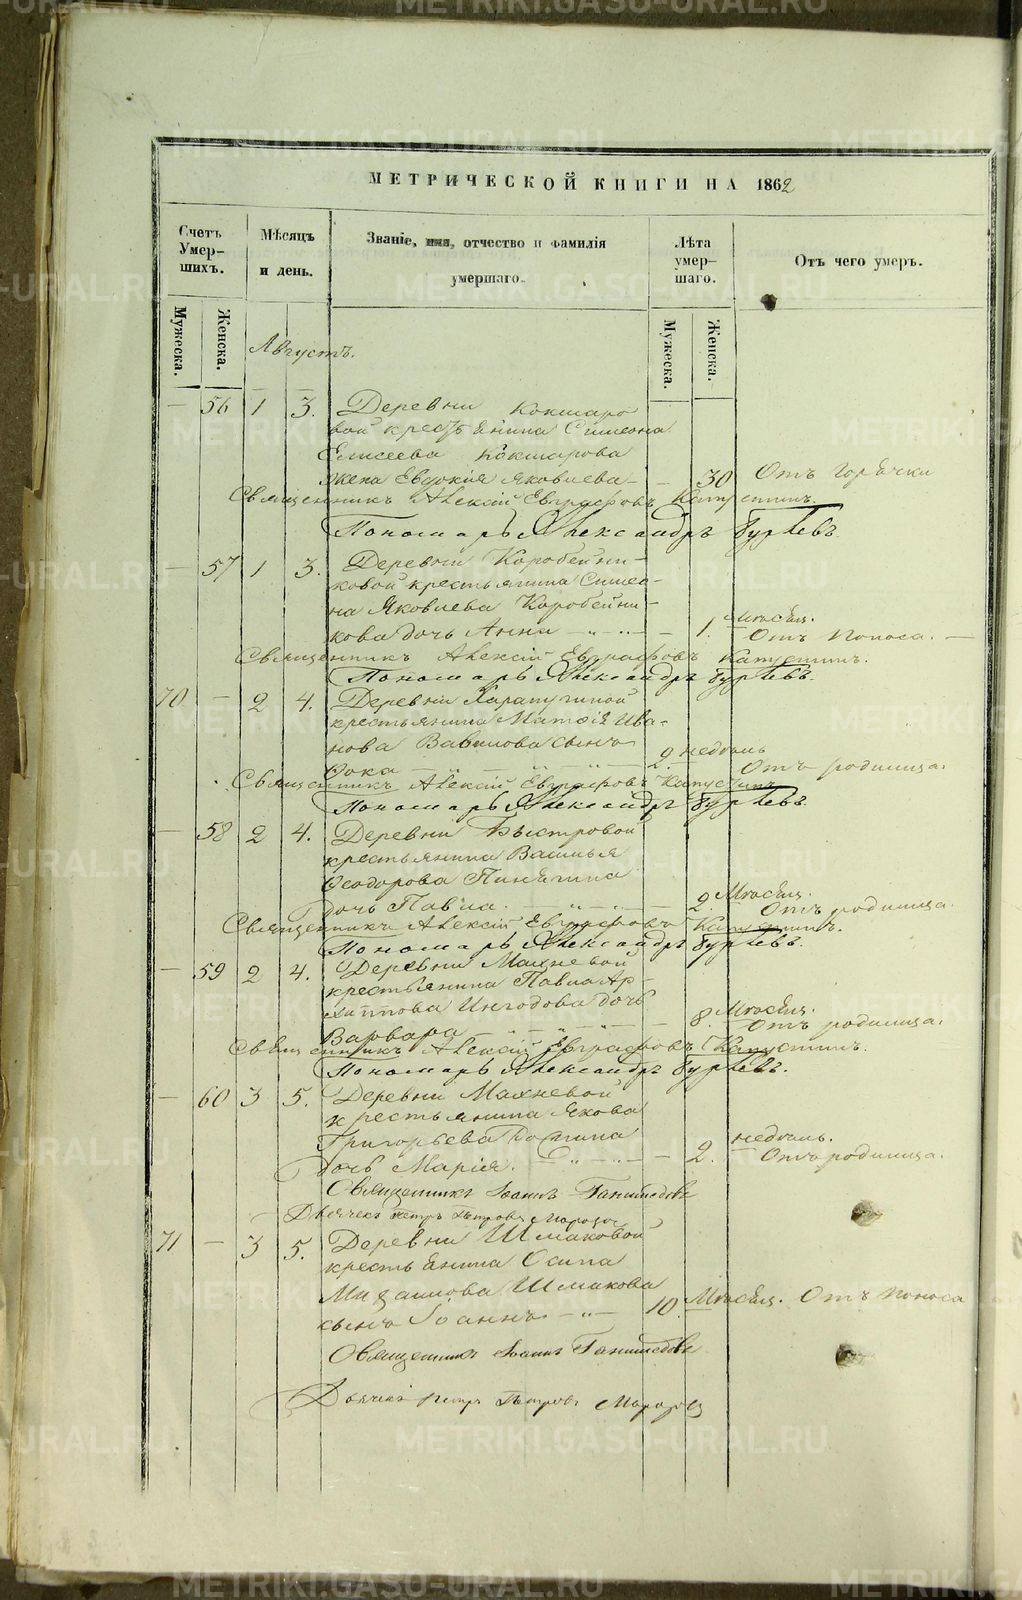 МЕТРИЧЕСКОЙ КНИГИ НА 1862
Счетъ Умер-шихъ.
Мѣсяцъ и день.
Званіе, имя, отчество и фамилія умершаго.
Лѣта умер-шаго.
Отъ чего умеръ.
Мужеска.
Женска.
Мужеска.
Женска.
Августъ.
— 56 1 3. Деревни Кокшаро
вой крестьянина Симеона
Елисеева Кокшарова
жена Евдокія Яковлева — — 30 Отъ горячки
Священникъ Алексій Евграфовъ Капустинъ.
Пономарь Александръ Гурьевъ.
— 57 1 3. Деревни Коробейни-
ковой крестьянина Симео-
на Яковлева Коробейни-
кова дочь Анна — 1. Мѣсяц.
Отъ поноса. —
Священникъ Алексій Евграфовъ Капустинъ.
Пономарь Александръ Гурьевъ.
70 — 2 4. Деревни
крестьянина Матѳія Ива-
нова Вавилова сынъ
Ѳока — 2. недѣль
Отъ родимца.
Священникъ Алексій Евграфовъ Капустинъ
Пономарь Александръ Гурьевъ.
— 58 2 4. Деревни Быстровой
крестьянина Василья
Ѳеодорова Пинягина
дочь Павла. — 2. Мѣсяц.
Отъ родимца.
Священникъ Алексій Евграфовъ Капустинъ.
Пономарь Александръ Гурьевъ.
— 59 2 4. Деревни Махневой
крестьянина Павла Ар-
хиппова Ингодова дочь
Варвара — 8. Мѣсяц.
Отъ родимца.
Священникъ Алексій Евграфовъ Капустинъ.
Пономарь Александръ Гурьевъ.
— 60 3 5. Деревни Махневой
крестьянина Якова
Григорьева
дочь Марія. — 2. недѣль.
Отъ родимца.
Священникъ Іоаннъ
Дьячекъ Петръ Петровъ Морозовъ
71 — 3 5. Деревни Шмаковой
крестьянина Осипа
Михаилова Шмакова
сынъ Іоаннъ — 10. Мѣсяц. Отъ поноса
Священникъ Іоаннъ
Дьячекъ Петръ Петровъ Морозовъ
METRIKI.GASO-URAL.RU